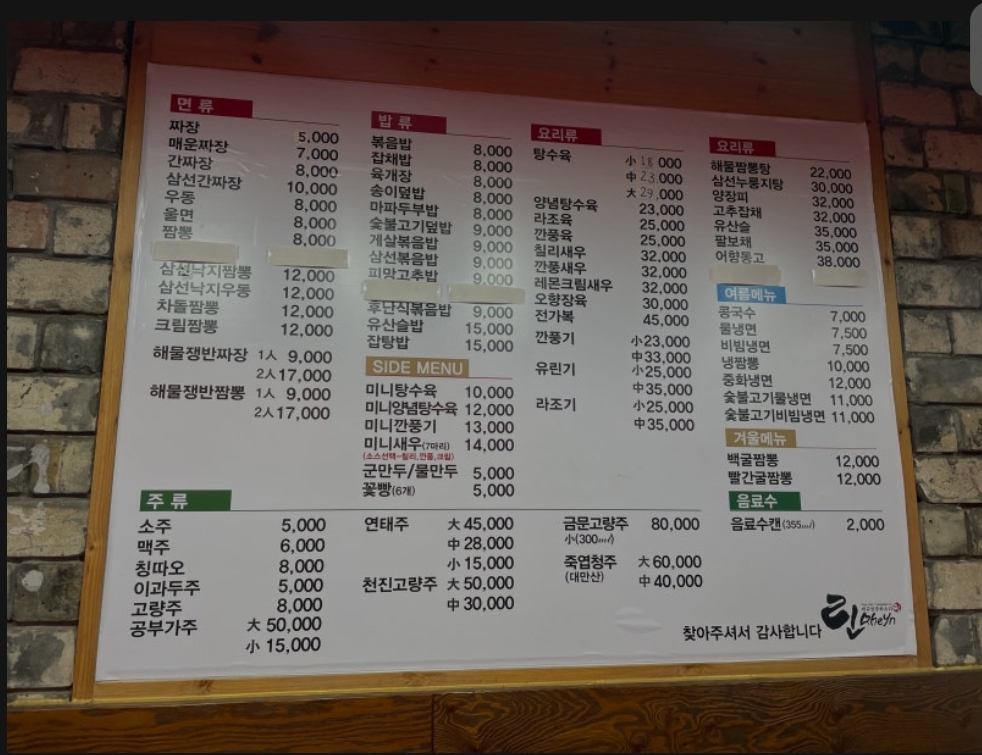 면 류
짜장 5,000
매운짜장 7,000
간짜장 8,000
삼선간짜장 10,000
우동 8,000
울면 8,000
짬뽕 8,000
삼선낙지짬뽕 12,000
삼선낙지우동 12,000
차돌짬뽕 12,000
크림짬뽕 12,000
해물쟁반짜장 1人 9,000
2人 17,000
해물쟁반짬뽕 1人 9,000
2人 17,000
밥 류
볶음밥 8,000
잡채밥 8,000
육개장 8,000
송이덮밥 8,000
마파두부밥 8,000
숯불고기덮밥 9,000
게살볶음밥 9,000
삼선볶음밥 9,000
피망고추밥 9,000
후난식볶음밥 9,000
유산슬밥 15,000
잡탕밥 15,000
SIDE MENU
미니탕수육 10,000
미니양념탕수육 12,000
미니깐풍기 13,000
미니새우(7마리) 14,000
(소스선택-칠리,깐풍,크림)
군만두/물만두 5,000
꽃빵(6개) 5,000
요리류
탕수육 小 18,000
中 23,000
大 29,000
양념탕수육 23,000
라조육 25,000
깐풍육 25,000
칠리새우 32,000
깐풍새우 32,000
레몬크림새우 32,000
오향장육 30,000
전가복 45,000
깐풍기 小 23,000
中 33,000
유린기 小 25,000
中 35,000
라조기 小 25,000
中 35,000
요리류
해물짬뽕탕 22,000
삼선누룽지탕 30,000
양장피 32,000
고추잡채 32,000
유산슬 35,000
팔보채 35,000
어향동고 38,000
여름메뉴
콩국수 7,000
물냉면 7,500
비빔냉면 7,500
냉짬뽕 10,000
중화냉면 12,000
숯불고기물냉면 11,000
숯불고기비빔냉면 11,000
겨울메뉴
백굴짬뽕 12,000
빨간굴짬뽕 12,000
음료수
음료수캔(355㎖) 2,000
주 류
소주 5,000
맥주 6,000
칭따오 8,000
이과두주 5,000
고량주 8,000
공부가주 大 50,000
小 15,000
연태주 大 45,000
中 28,000
小 15,000
천진고량주 大 50,000
中 30,000
금문고량주 80,000
小(300㎖)
죽엽청주 大 60,000
(대만산) 中 40,000
찾아주셔서 감사합니다
린